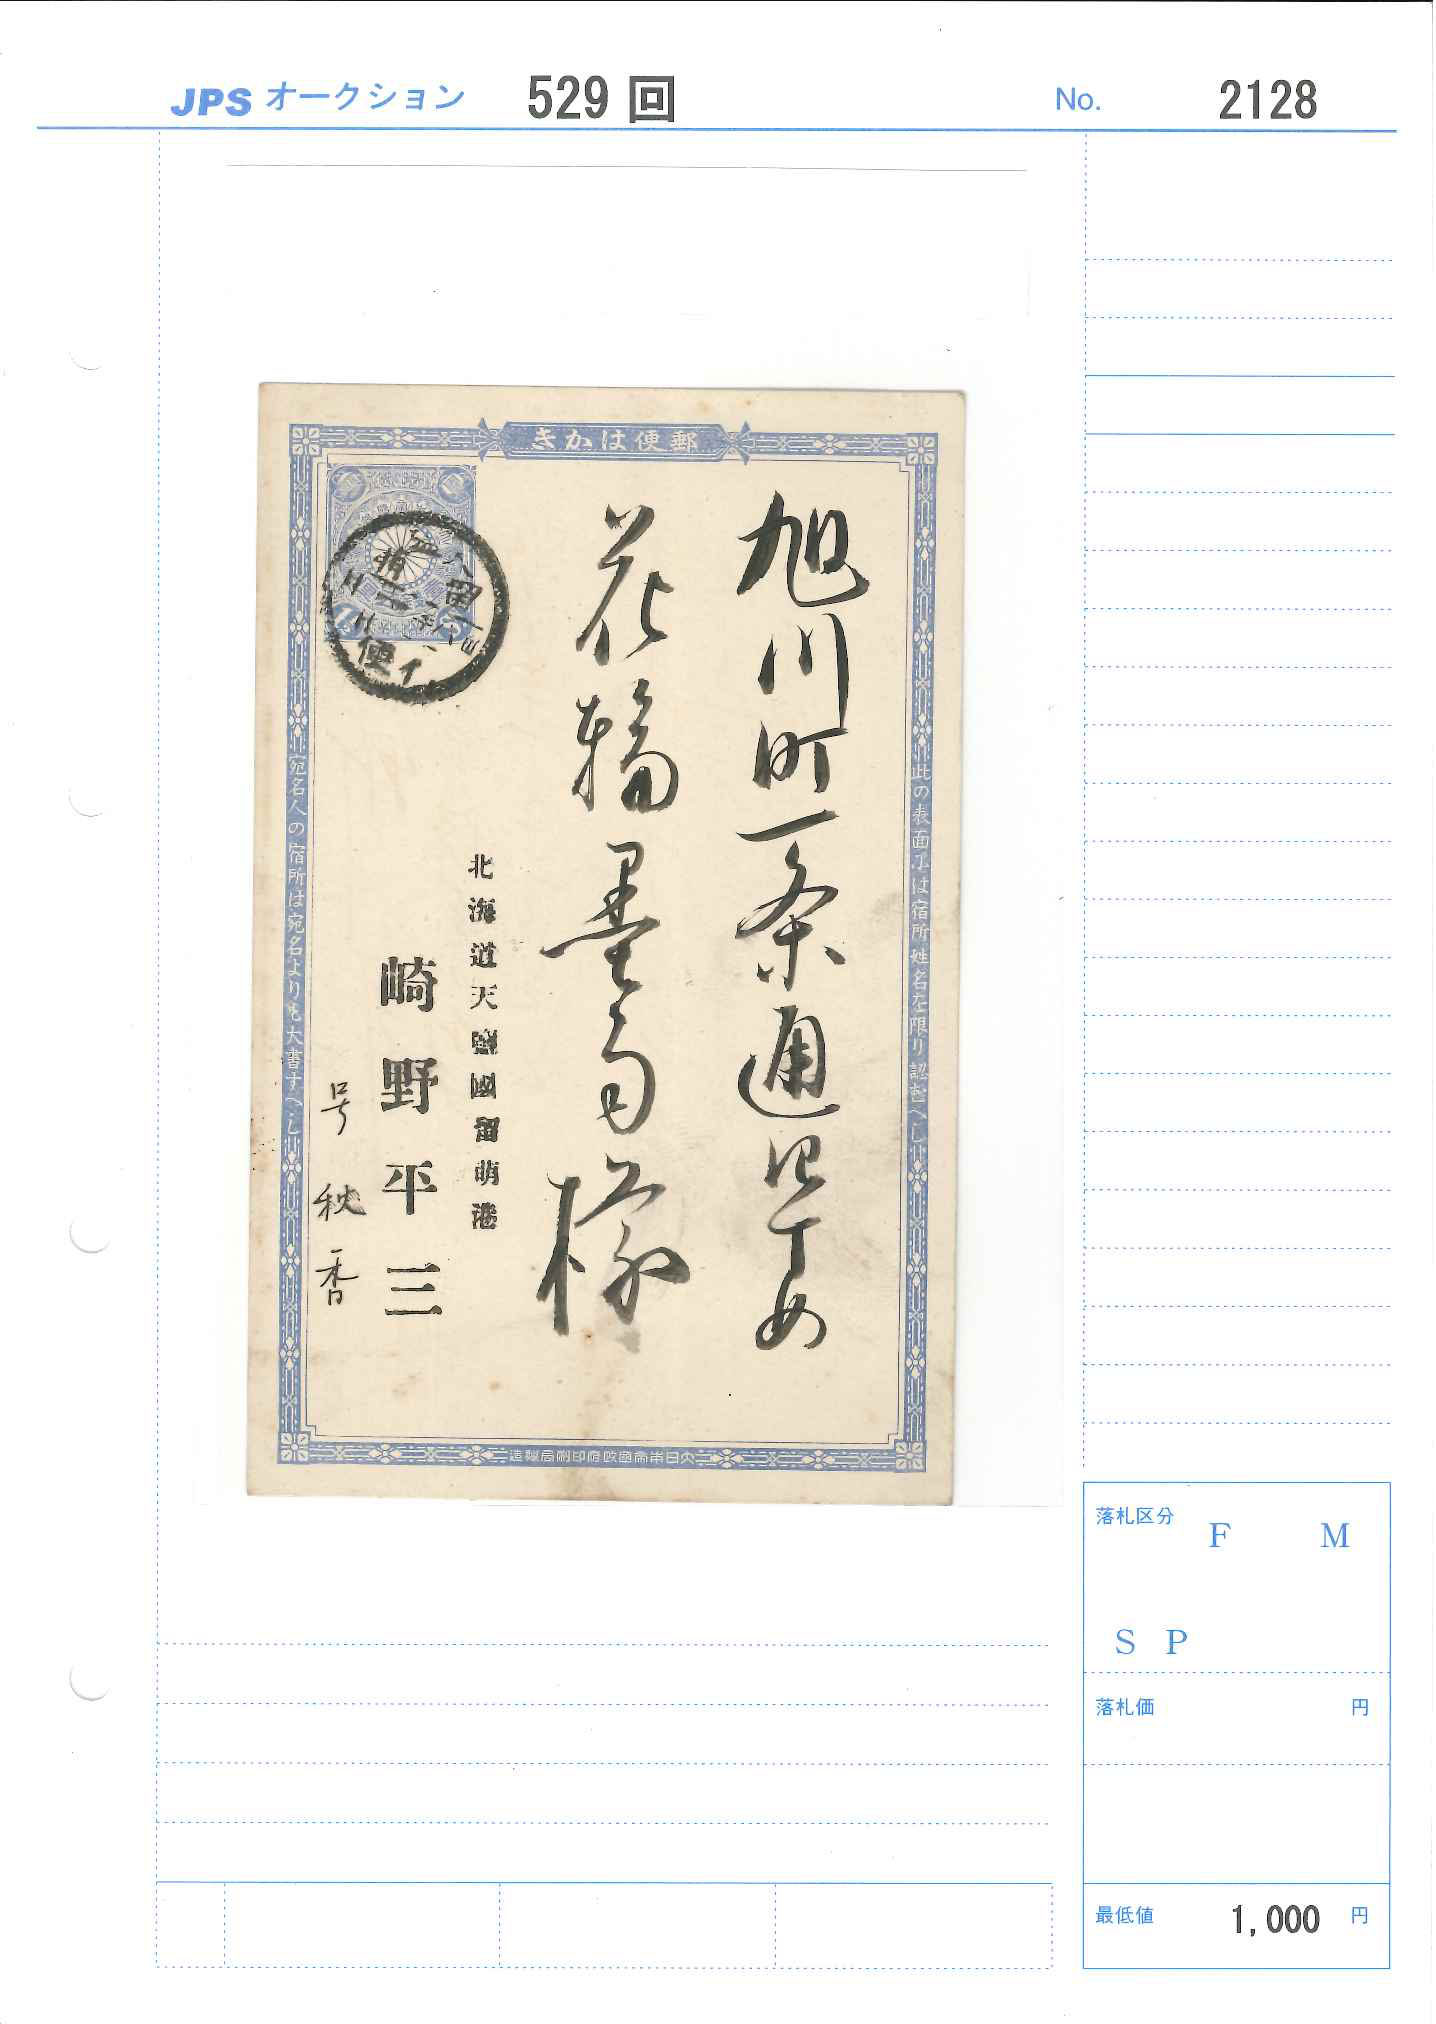 JPS オークション 529 回 No. 2128
郵便はかき
此の表面には宿所姓名を限り認むへし
旭川町一条通四丁め
花輪墨雨様
北海道天鹽國留萌港
崎野平三
号 秋香
宛名人の宿所は宛名よりも大書すへし
大日本帝國政府印刷局製造
便
落札区分 F M
S P
落札価 円
最低値 1,000 円